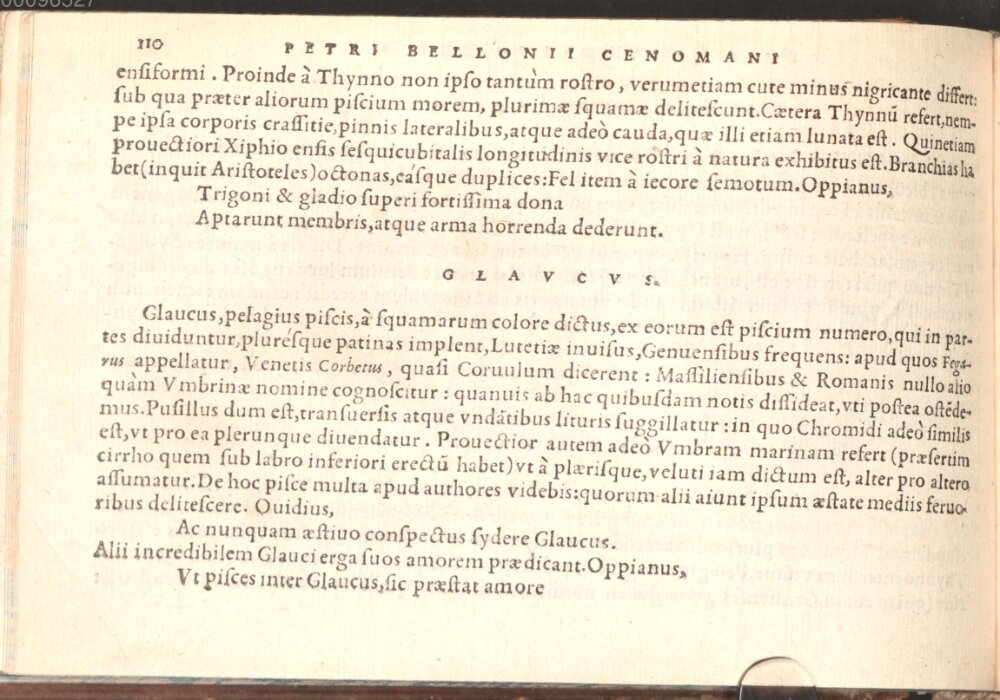 110 PETRI BELLONII CENOMANI
ensiformi. Proinde à Thynno non ipso tantùm rostro, verumetiam cute minus nigricante differt:
sub qua præter aliorum piscium morem, plurimæ squamæ delitescunt. Cætera Thynnũ refert, nem-
pe ipsa corporis crassitie, pinnis lateralibus, atque adeò cauda, quæ illi etiam lunata est. Quinetiam
prouectiori Xiphio ensis sesquicubitalis longitudinis vice rostri à natura exhibitus est. Branchias ha
bet (inquit Aristoteles) octonas, eásque duplices: Fel item à iecore semotum. Oppianus,
Trigoni & gladio superi fortissima dona
Aptarunt membris, atque arma horrenda dederunt.
GLAVCVS.
Glaucus, pelagius piscis, à squamarum colore dictus, ex eorum est piscium numero, qui in par-
tes diuiduntur, plurésque patinas implent, Lutetiæ inuisus, Genuensibus frequens: apud quos Fegá-
rus appellatur, Venetis Corbetus, quasi Coruulum dicerent: Massiliensibus & Romanis nullo alio
quàm Vmbrinæ nomine cognoscitur: quanuis ab hac quibusdam notis dissideat, vti postea ostẽde-
mus. Pusillus dum est, transuersis atque vndātibus lituris suggillatur: in quo Chromidi adeò similis
est, vt pro ea plerunque diuendatur. Prouectior autem adeò Vmbram marinam refert (præsertim
cirrho quem sub labro inferiori erectũ habet) vt à plærisque, veluti iam dictum est, alter pro altero
assumatur. De hoc pisce multa apud authores videbis: quorum alii aiunt ipsum æstate mediis feruo-
ribus delitescere. Ouidius,
Ac nunquam æstiuo conspectus sydere Glaucus.
Alii incredibilem Glauci erga suos amorem prædicant. Oppianus,
Vt pisces inter Glaucus, sic præstat amore